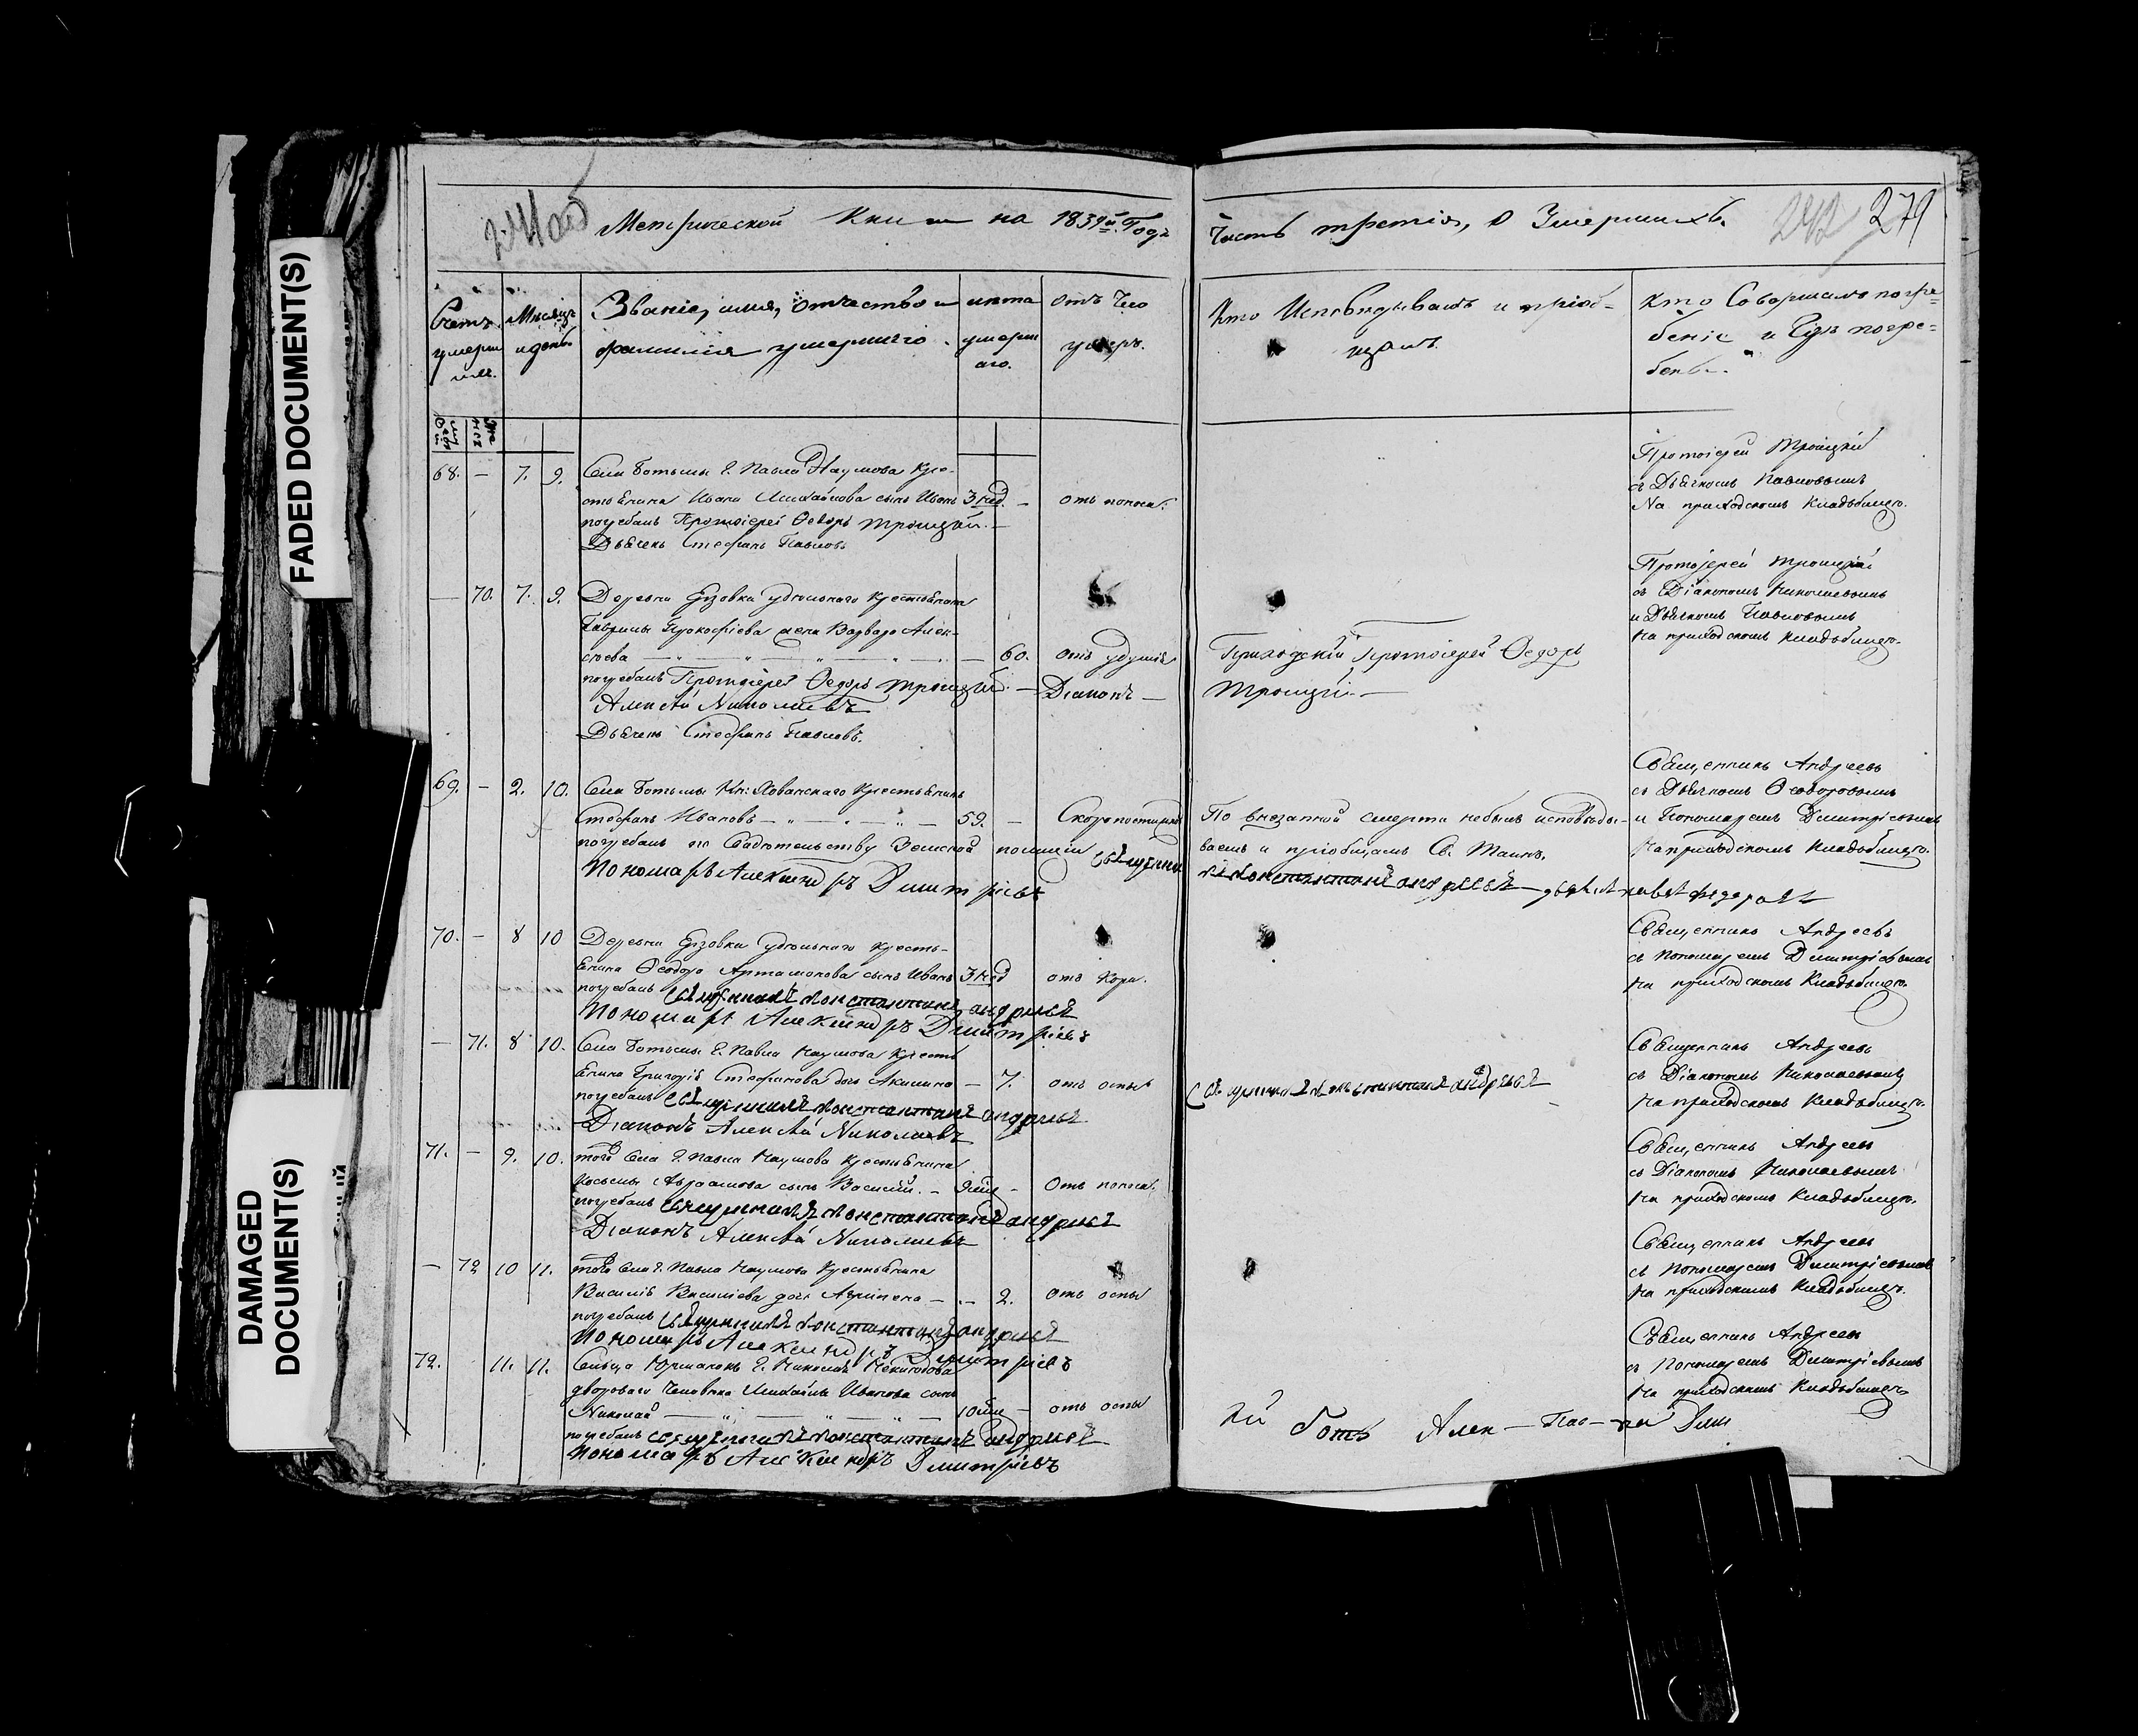 FADED DOCUMENT(S)
DAMAGED
DOCUMENT(S)
Метрической Книги на 1839й Годъ
Часть третія, о Умершихъ.
242 279
Счетъ
умерш
ихъ.
Мѣсяцъ
и день
Званіе, имя, отчество и
фамилія умершаго.
лѣта
умерш
аго.
Отъ чего
умеръ.
Кто Исповѣдывалъ и пріоб-
щалъ.
Кто Совершалъ погре=
беніе и Гдѣ погре=
бенъ.
68. — 7. 9. Села Ботьмы Г. Павла Наумова Кре-
стьянина Ивана Михайлова сынъ Иванъ 3 нед. — отъ поноса.
погребалъ Протоіерей Ѳеодоръ Троицкій. —
Дьячекъ Стефанъ Павловъ
Протоіерей Троицкій
съ Дьячкомъ Павловымъ
На приходскомъ Кладбищѣ.
— 70. 7. 9. Деревни Ерзовки удѣльнаго крестьянина
Гаврилы Прокофіева жена Варвара Алек-
сѣева — 60. отъ удушья
погребалъ Протоіерей Ѳедоръ Троицкій. — Діаконъ —
Алексѣй Николаевъ
Дьячекъ Стефанъ Павловъ.
Приходскій Протоіерей Ѳедоръ
Троицкій. —
Протоіерей Троицкій
съ Діакономъ Николаевымъ
и Дьячкомъ Павловымъ
На приходскомъ кладбищѣ.
69. — 2. 10. Села Ботьмы Кн: Хованскаго Крестьянинъ
Стефанъ Ивановъ — 59. — Скоропостижно
погребалъ по Свидѣтельству Земской полиціи Священни
Пономарь Александръ Дмитріевъ
По внезапной смерти небылъ исповѣды-
ваемъ и пріобщаемъ Св. Таинъ.
къ Константинъ Андреевъ —
Священникъ Андреевъ
съ Дьячкомъ Ѳеодоровымъ
и Пономаремъ Дмитріевымъ
На приходскомъ Кладбищѣ.
70. — 8 10 Деревни Ерзовки удѣльнаго кресть-
янина Ѳеодора Артамонова сынъ Иванъ 3 нед отъ Кори.
погребалъ Священникъ Константинъ Андреевъ
Пономарь Александръ Дмитріевъ
Священникъ Андреевъ
съ пономаремъ Дмитріевымъ
На приходскомъ Кладбищѣ.
— 71. 8 10. Села Ботьмы Г. Павла Наумова Кресть
янина Григорія Стефанова дочь Акилина — 7. отъ оспы
погребалъ Священникъ Константинъ Андреевъ
Діаконъ Алексѣй Николаевъ
Священникъ Константинъ Андреевъ
Священникъ Андреевъ
съ Діакономъ Николаевымъ
На приходскомъ Кладбищѣ.
71. — 9. 10. того Села Г. Павла Наумова Крестьянина
Косьмы Авраамова сынъ Василій. — Отъ поноса.
погребалъ Священникъ Константинъ Андреевъ
Діаконъ Алексѣй Николаевъ
Священникъ Андреевъ
съ Діакономъ Николаевымъ
На приходскомъ Кладбищѣ.
— 72 10 11. того Села Г. Павла Наумова Крестьянина
Василія Васильева дочь Агрипена — 2. отъ оспы
погребалъ Священникъ Константинъ Андреевъ
Пономарь Александръ Дмитріевъ
Священникъ Андреевъ
съ пономаремъ Дмитріевымъ
На приходскомъ Кладбищѣ.
72. 11. 11. Сельца Г. Николая
двороваго человѣка Михайлы Иванова сынъ
Николай — отъ оспы
погребалъ Священникъ Константинъ Андреевъ
Пономарь Александръ Дмитріевъ
Священникъ Андреевъ
съ Пономаремъ Дмитріевымъ
На приходскомъ Кладбищѣ